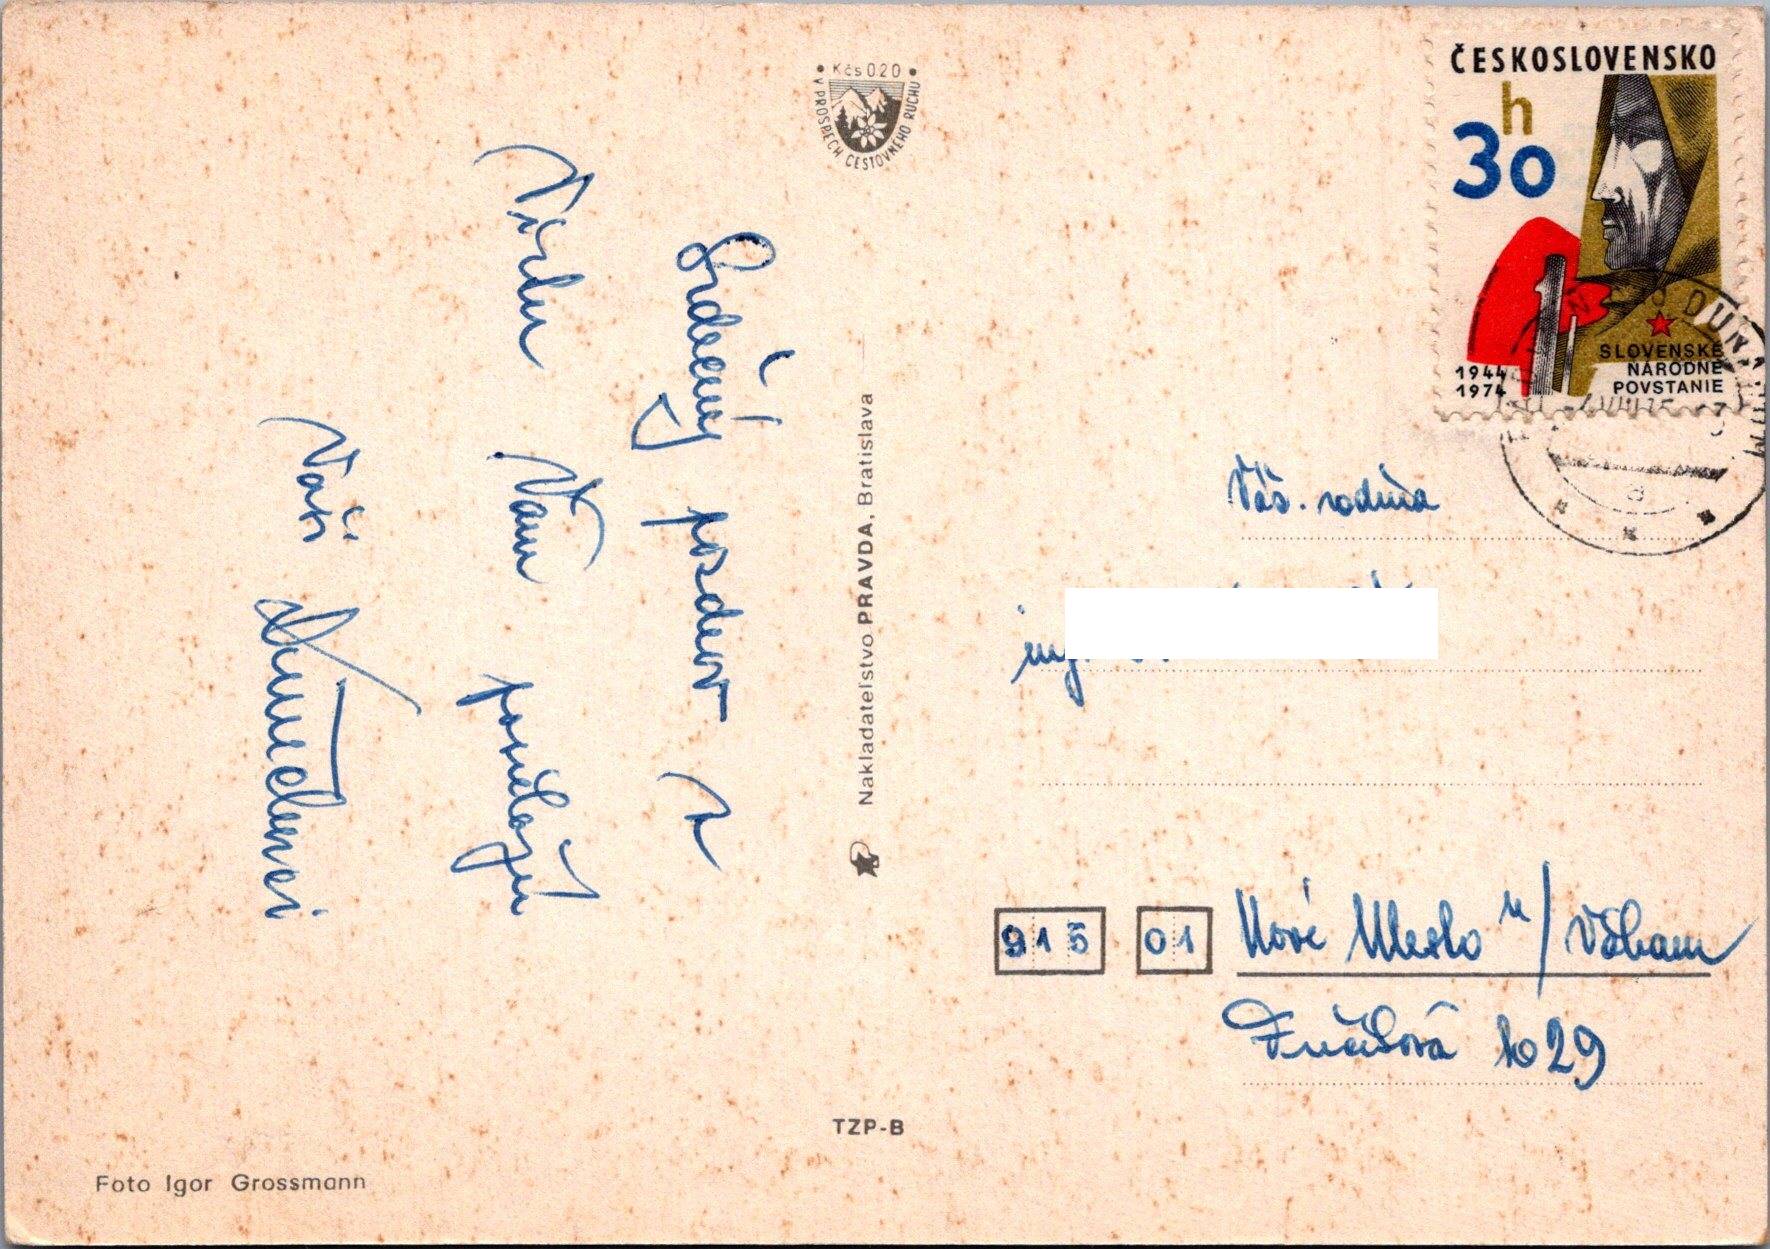 Kčs 0.20
V PROSPECH CESTOVNÉHO RUCHU
Srdečný pozdrav z
Vám posielajú
Vaši
Nakladateľstvo PRAVDA, Bratislava
TZP-B
Foto Igor Grossmann
ČESKOSLOVENSKO
h
30
1944
1974
SLOVENSKÉ
NÁRODNÉ
POVSTANIE
Váž. rodina
ing.
915 01 Nové Mesto n/Váhom
Fučíková 1029